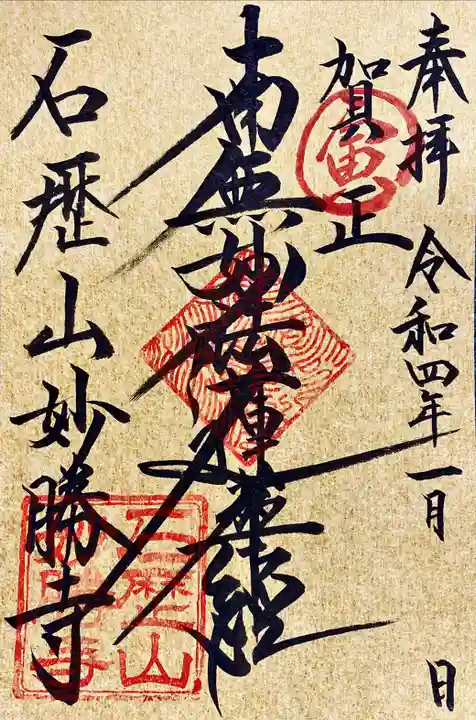 奉拝 令和四年一月 日
賀正
南無妙法蓮華経
石歴山妙勝寺
石歴山
妙勝寺